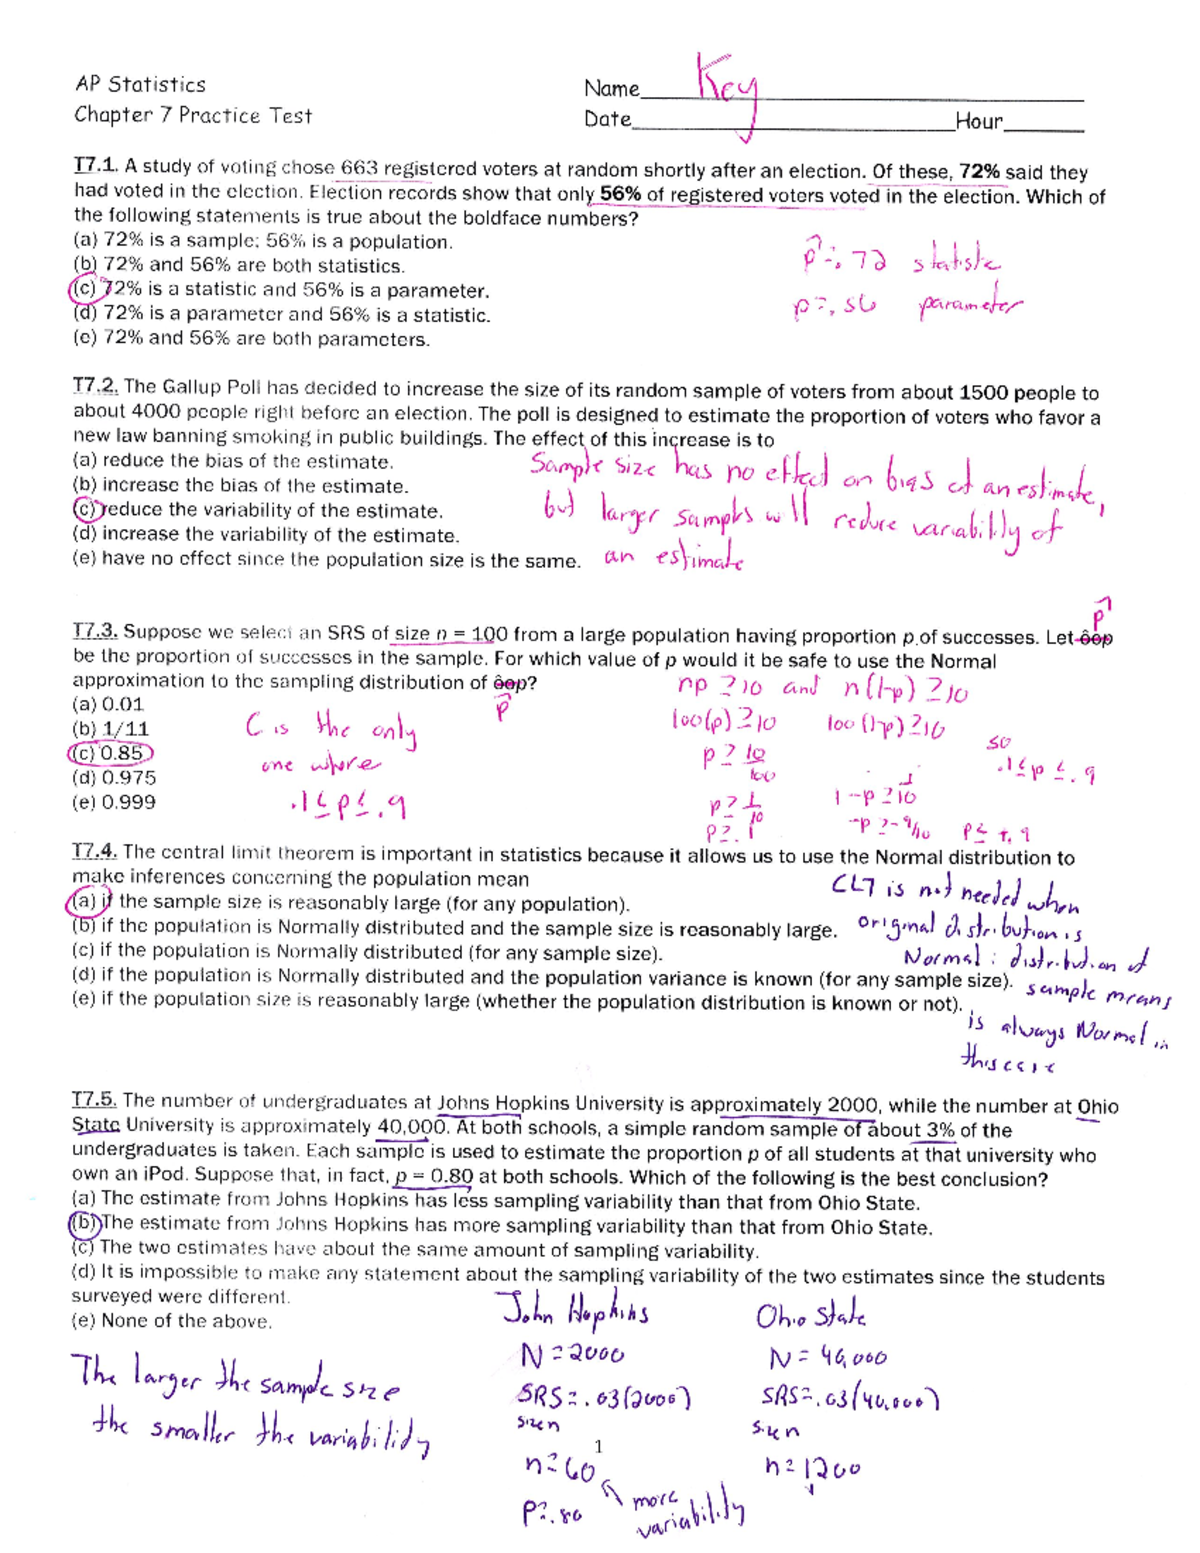 AP Statistics
Chapter 7 Practice Test
Name Key
Date Hour
T7.1. A study of voting chose 663 registered voters at random shortly after an election. Of these, 72% said they
had voted in the election. Election records show that only 56% of registered voters voted in the election. Which of
the following statements is true about the boldface numbers?
(a) 72% is a sample; 56% is a population.
(b) 72% and 56% are both statistics.
(c) 72% is a statistic and 56% is a parameter.
(d) 72% is a parameter and 56% is a statistic.
(e) 72% and 56% are both parameters.
p̂ = .72 statistic
p = .56 parameter
T7.2. The Gallup Poll has decided to increase the size of its random sample of voters from about 1500 people to
about 4000 people right before an election. The poll is designed to estimate the proportion of voters who favor a
new law banning smoking in public buildings. The effect of this increase is to
(a) reduce the bias of the estimate.
(b) increase the bias of the estimate.
(c) reduce the variability of the estimate.
(d) increase the variability of the estimate.
(e) have no effect since the population size is the same.
Sample size has no effect on bias of an estimate,
but larger samples will reduce variability of
an estimate
p̂
T7.3. Suppose we select an SRS of size n = 100 from a large population having proportion p of successes. Let ôop
be the proportion of successes in the sample. For which value of p would it be safe to use the Normal
approximation to the sampling distribution of ôop?
p̂
(a) 0.01
(b) 1/11
(c) 0.85
(d) 0.975
(e) 0.999
C is the only
one where
.1 ≤ p ≤ .9
np ≥ 10 and n(1-p) ≥ 10
100(p) ≥ 10 100(1-p) ≥ 10
p ≥ 10/100
1-p ≥ 1/10
p ≥ 1/10
-p ≥ -9/10 p ≤ +.9
p ≥ .1
so
.1 ≤ p ≤ .9
T7.4. The central limit theorem is important in statistics because it allows us to use the Normal distribution to
make inferences concerning the population mean
(a) if the sample size is reasonably large (for any population).
(b) if the population is Normally distributed and the sample size is reasonably large.
(c) if the population is Normally distributed (for any sample size).
(d) if the population is Normally distributed and the population variance is known (for any sample size).
(e) if the population size is reasonably large (whether the population distribution is known or not).
CLT is not needed when
original distribution is
Normal; distribution of
sample means
is always Normal in
this case
T7.5. The number of undergraduates at Johns Hopkins University is approximately 2000, while the number at Ohio
State University is approximately 40,000. At both schools, a simple random sample of about 3% of the
undergraduates is taken. Each sample is used to estimate the proportion p of all students at that university who
own an iPod. Suppose that, in fact, p = 0.80 at both schools. Which of the following is the best conclusion?
(a) The estimate from Johns Hopkins has less sampling variability than that from Ohio State.
(b) The estimate from Johns Hopkins has more sampling variability than that from Ohio State.
(c) The two estimates have about the same amount of sampling variability.
(d) It is impossible to make any statement about the sampling variability of the two estimates since the students
surveyed were different.
(e) None of the above.
The larger the sample size
the smaller the variability
John Hopkins
N = 2000
SRS = .03(2000)
size n
n = 60
p = .80
more
variability
Ohio State
N = 40,000
SRS = .03(40,000)
size n
n = 1200
1